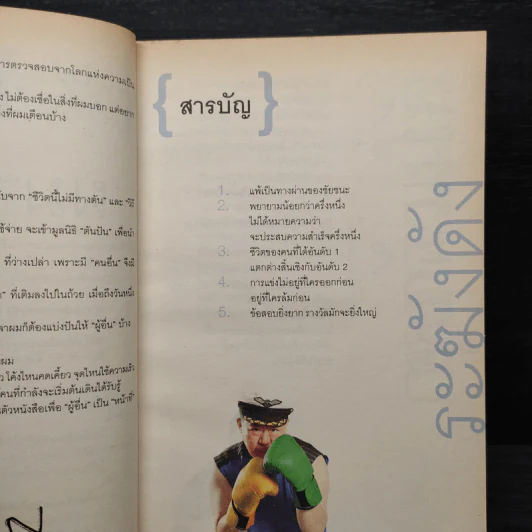 ารตรวจสอบจากโลกแห่งความเป็น
ไม่ต้องเชื่อในสิ่งที่ผมบอก แต่อยาก
งที่ผมเตือนบ้าง
บจาก "ชีวิตนี้ไม่มีทางตัน" และ
ช้จ่าย จะเข้ามูลนิธิ "ตันปัน" เพื่อนำ
ที่ว่างเปล่า เพราะมี "คนอื่น" จึงมี
ที่เติมลงไปในถ้วย เมื่อถึงวันหนึ่ง
าผมก็ต้องแบ่งปันให้ "ผู้อื่น" บ้าง
ผม
ว โค้งไหนคดเคี้ยว จุดไหนใช้ความเร็ว
คนที่กำลังจะเริ่มต้นเดินได้รับรู้
ตัวหนังสือเพื่อ "ผู้อื่น" เป็น "หน้าที่"
{ สารบัญ }
1. แพ้เป็นทางผ่านของชัยชนะ
2. พยายามน้อยกว่าครึ่งหนึ่ง
ไม่ได้หมายความว่า
จะประสบความสำเร็จครึ่งหนึ่ง
3. ชีวิตของคนที่ได้อันดับ 1
แตกต่างสิ้นเชิงกับอันดับ 2
4. การแข่งไม่อยู่ที่ใครออกก่อน
อยู่ที่ใครล้มก่อน
5. ข้อสอบยิ่งยาก รางวัลมักจะยิ่งใหญ่